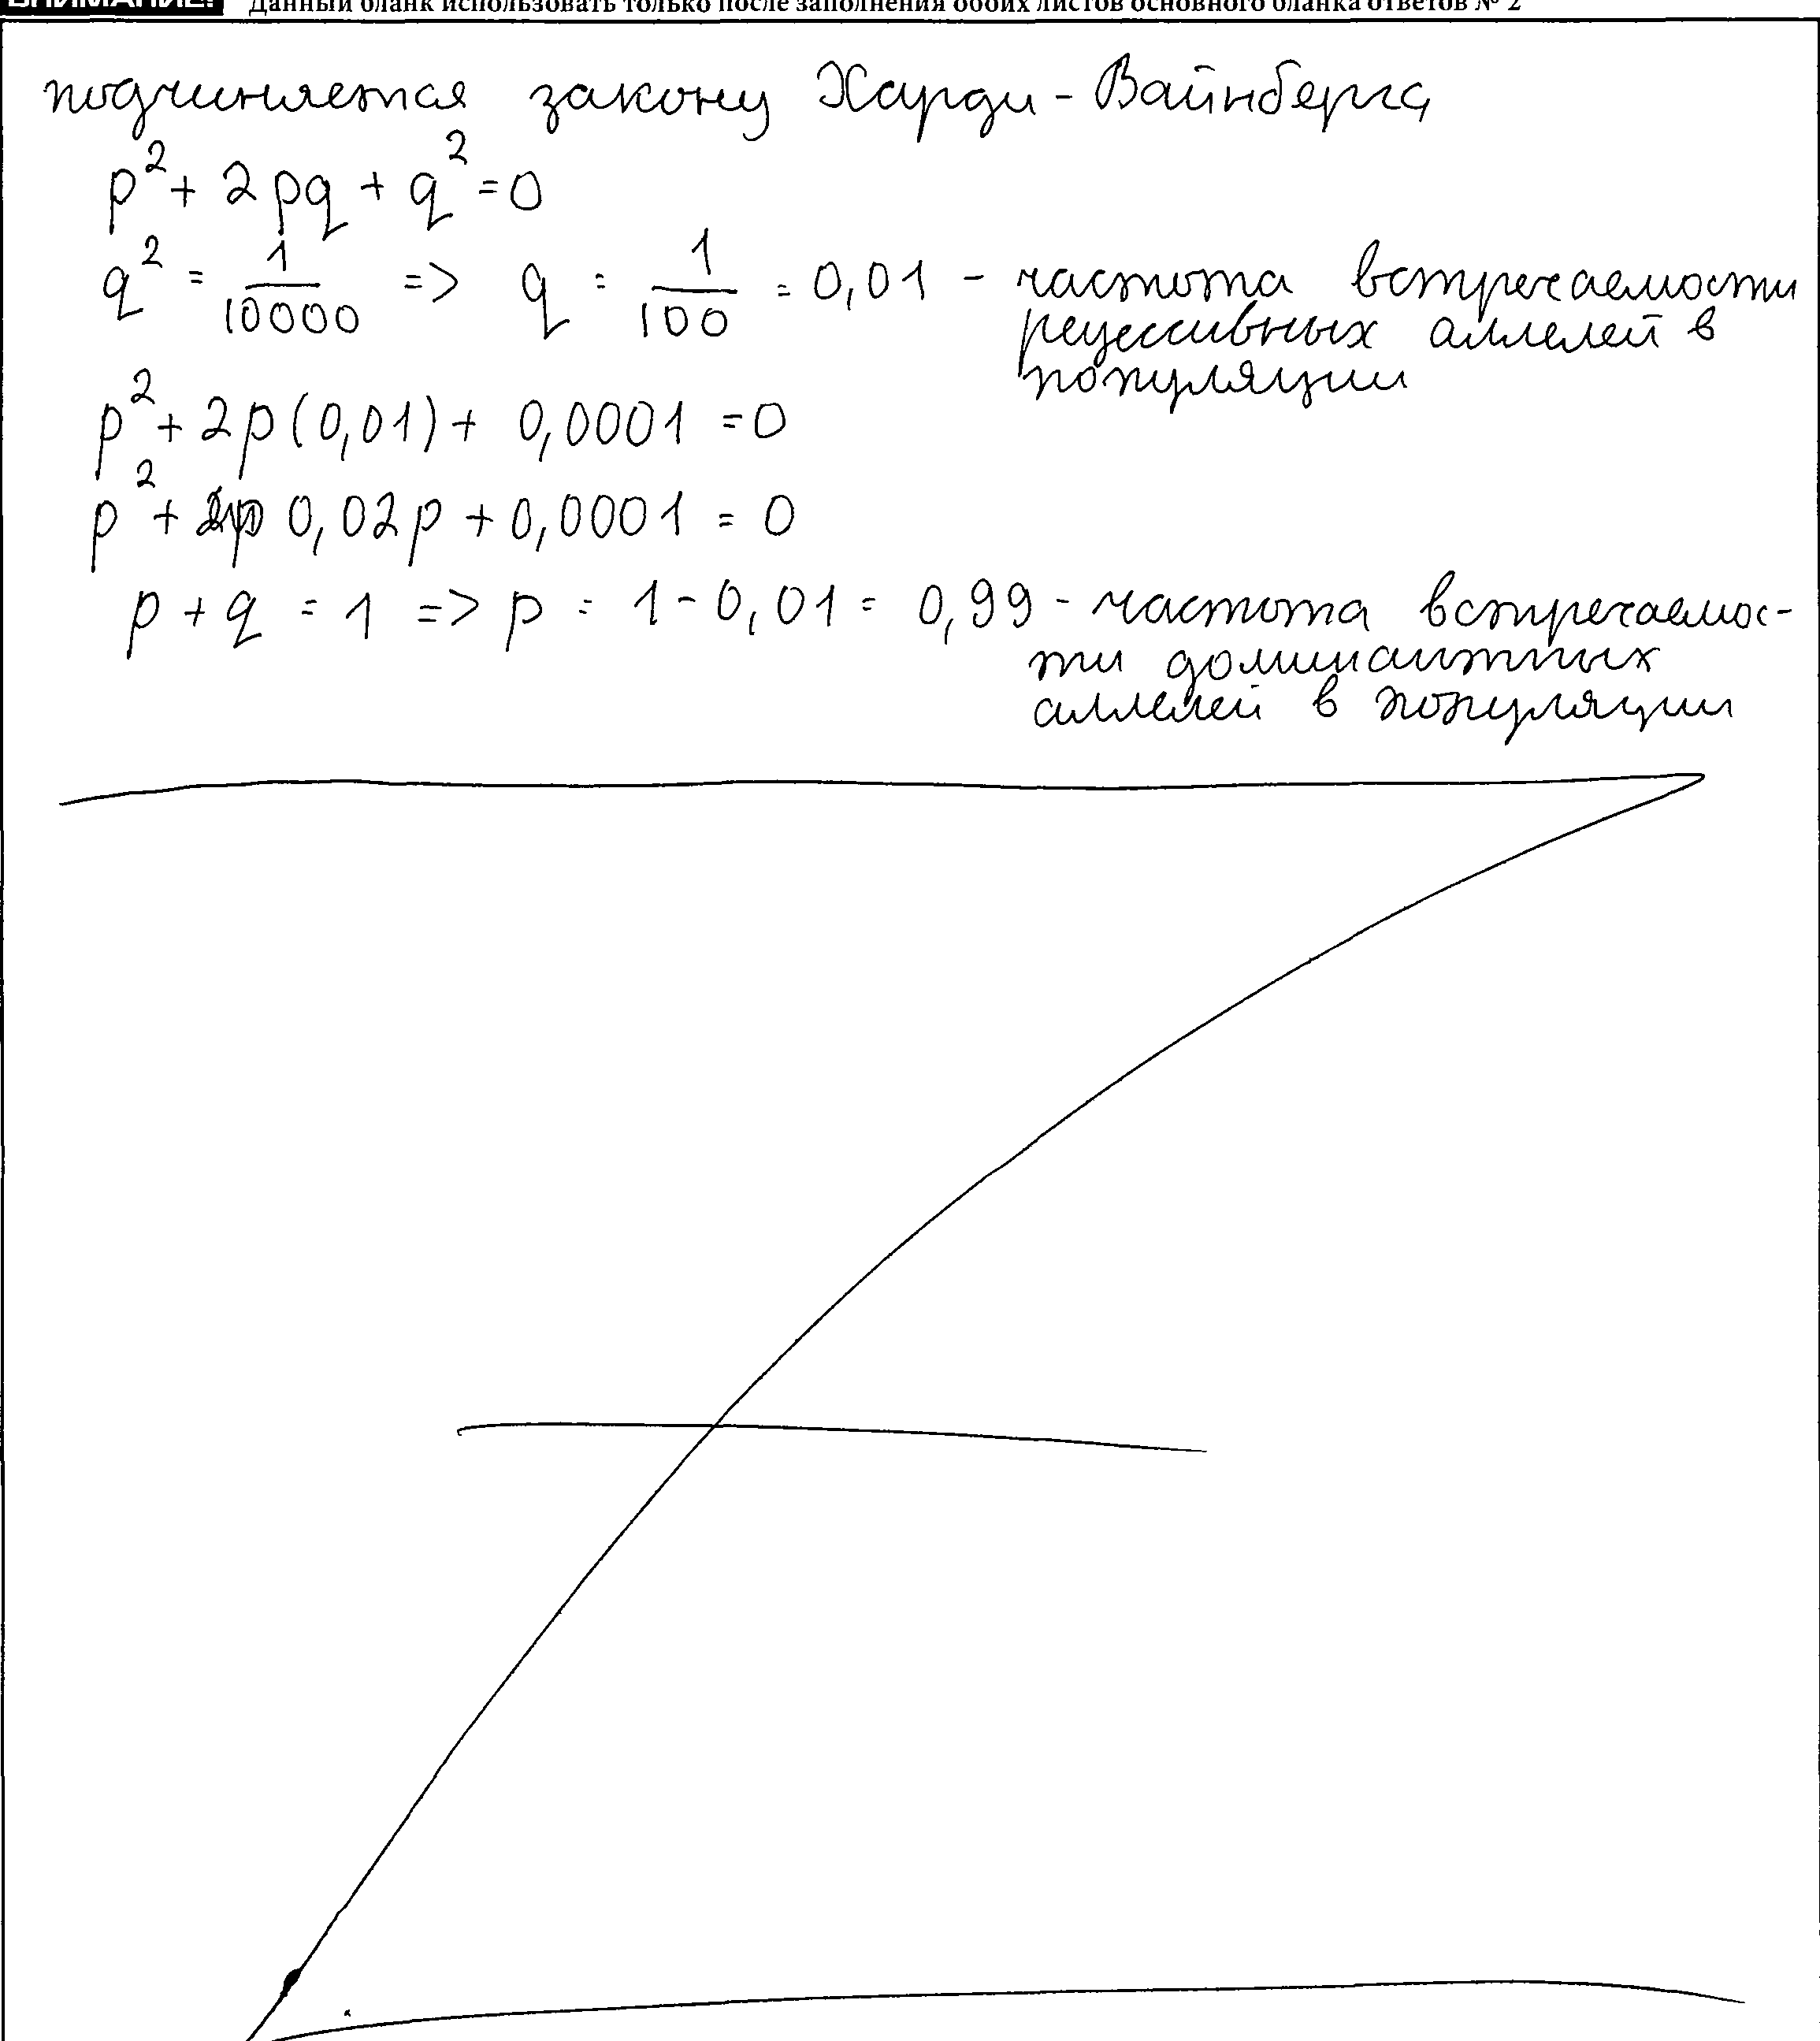 ВНИМАНИЕ! Данный бланк использовать только после заполнения обоих листов основного бланка ответов № 2
подчиняется закону Харди - Вайнберга
p² + 2pq + q² = 0
q² = 1/10000 => q = 1/100 = 0,01 - частота встречаемости
рецессивных аллелей в
популяции
p² + 2p(0,01) + 0,0001 = 0
p² + 0,02p + 0,0001 = 0
p + q = 1 => p = 1 - 0,01 = 0,99 - частота встречаемос-
ти доминантных
аллелей в популяции